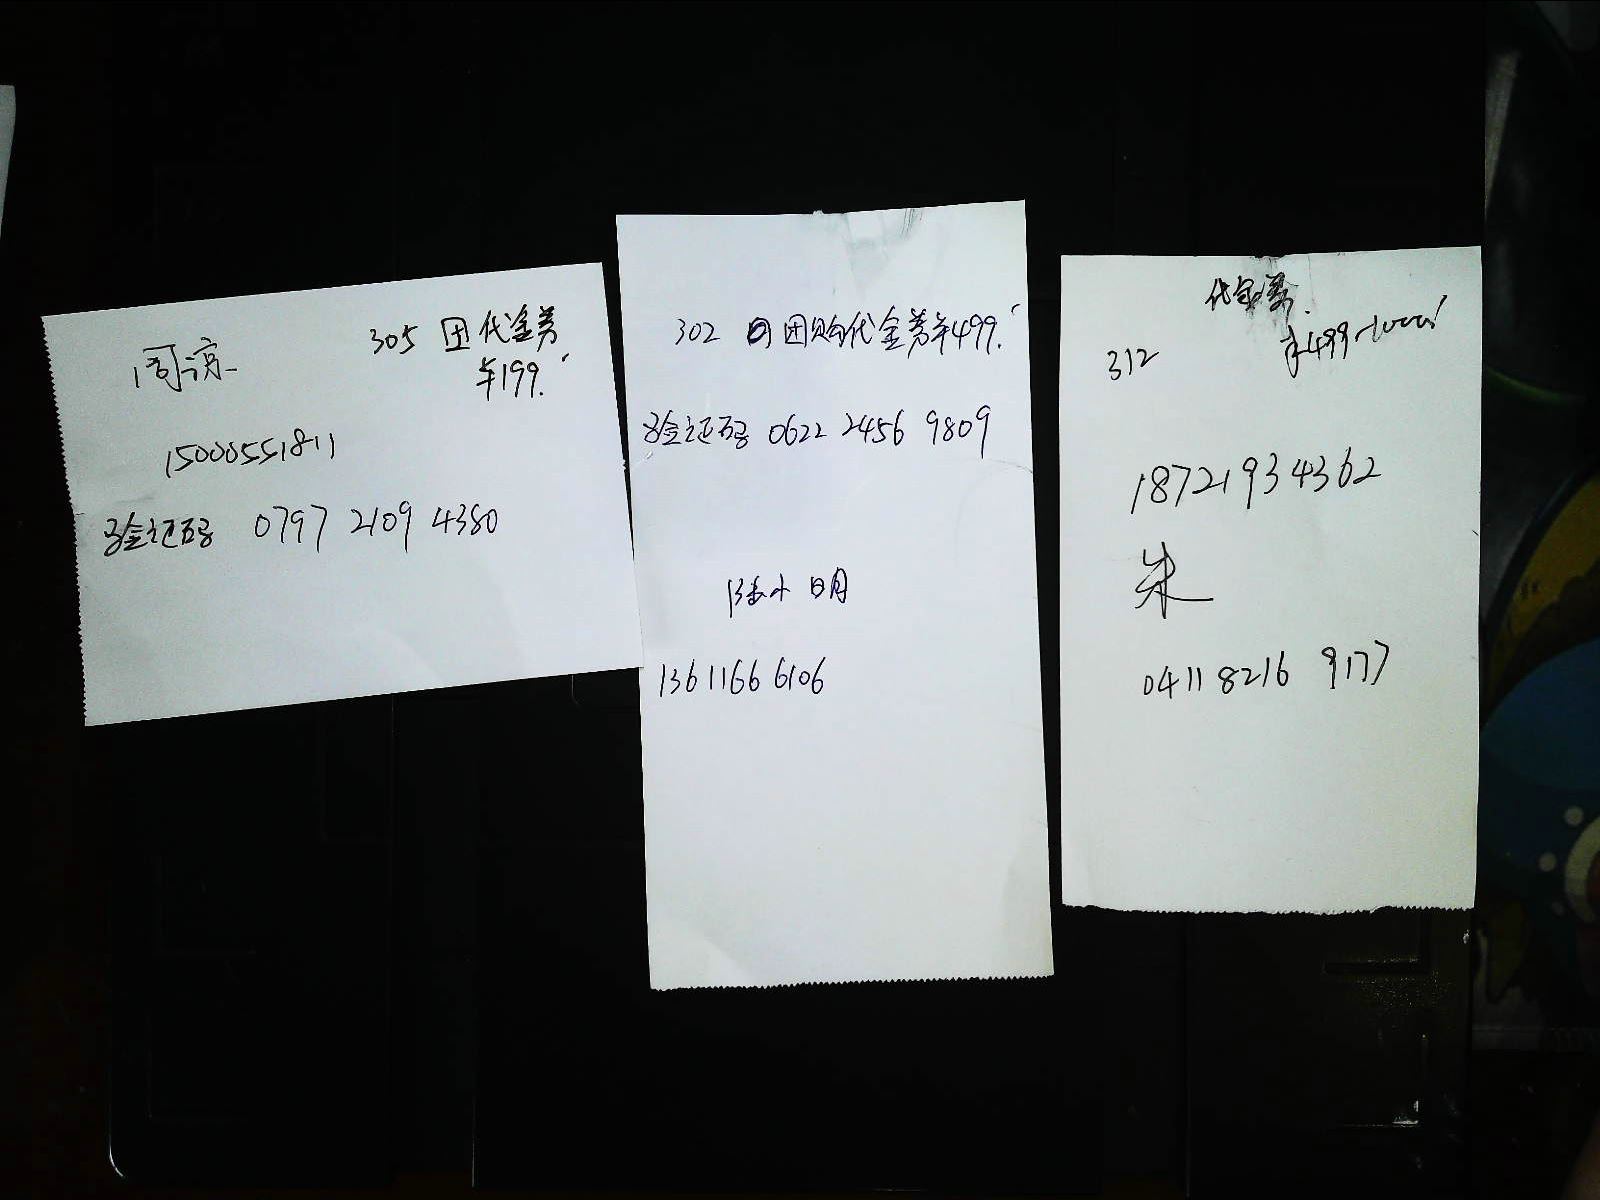 周谅
305 团代金券
¥199.
15000551811
验证码 0797 2109 4380
302 团购代金券¥499.
验证码 0622 2456 9809
陆小明
13611666106
代金券
312
¥499
18721934362
朱
0411 8216 9177